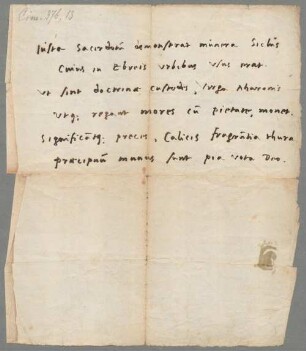 Cim. 376, 13
Iusta sacerdotum demonstrat munera Siclus
Cuius in Ebreis vrbibus vsus erat
Vt sint doctrinae custodes, virga Aharonis
Vtq; regant mores cū pietate, monet.
Significātq; preces, Calicis fragrātia thura
Praecipuū munus sunt pia vota Deo.